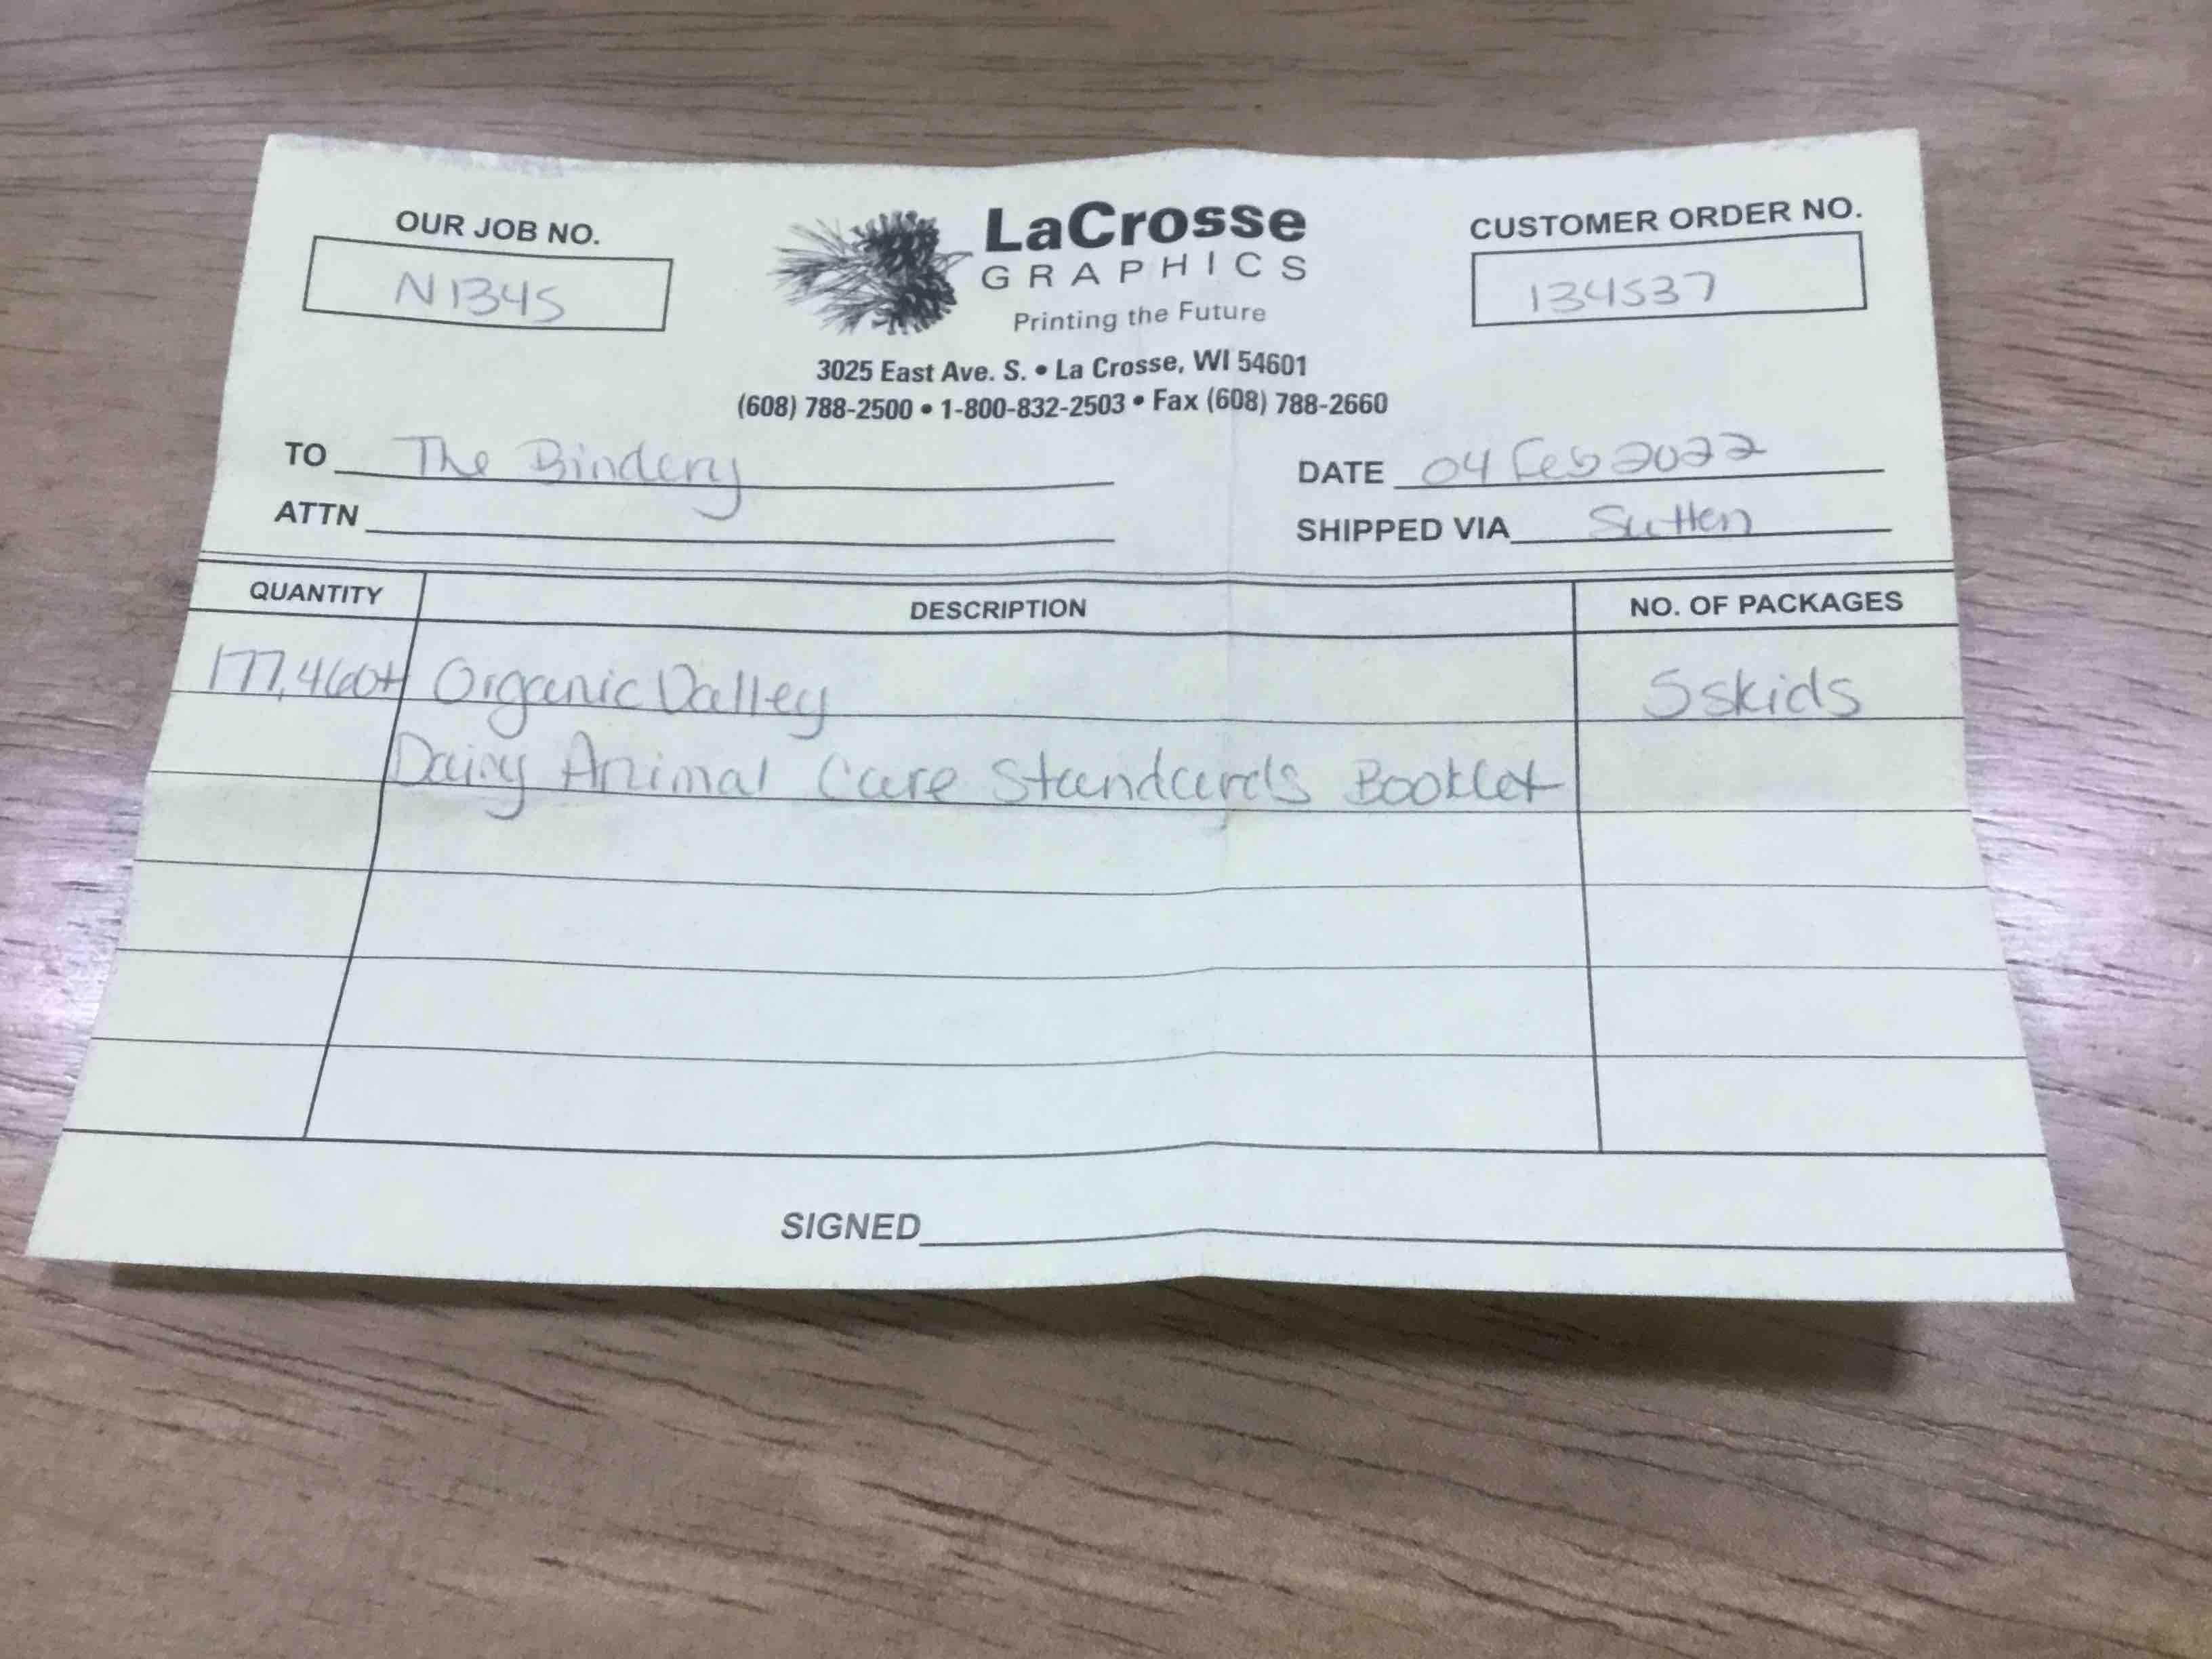 OUR JOB NO.
N1345
LaCrosse
GRAPHICS
Printing the Future
3025 East Ave. S. • La Crosse, WI 54601
(608) 788-2500 • 1-800-832-2503 • Fax (608) 788-2660
CUSTOMER ORDER NO.
134537
TO The Bindery
DATE 04 Feb 2022
ATTN
SHIPPED VIA Sutten
QUANTITY DESCRIPTION NO. OF PACKAGES
177,460+ Organic Valley 5 skids
Dairy Animal Care Standards Booklet
SIGNED